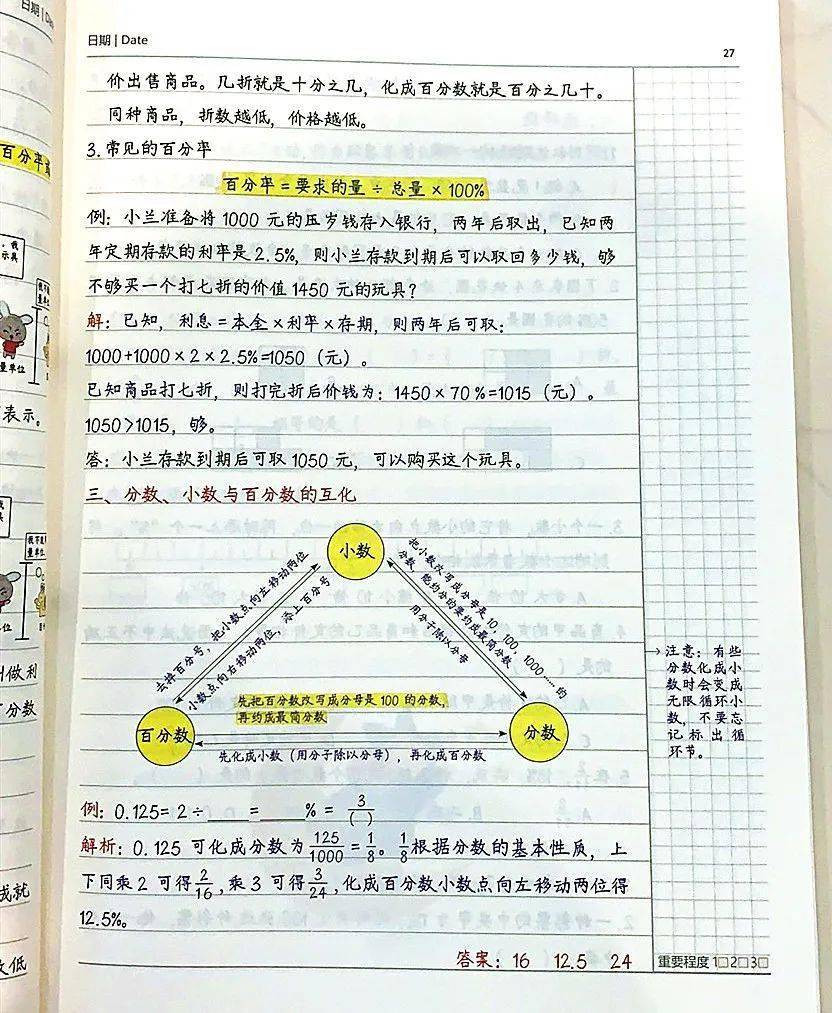 日期 | Date
27
价出售商品。几折就是十分之几，化成百分数就是百分之几十。
同种商品，折数越低，价格越低。
3.常见的百分率
百分率=要求的量÷总量×100%
例：小兰准备将1000元的压岁钱存入银行，两年后取出，已知两
年定期存款的利率是2.5%，则小兰存款到期后可以取回多少钱，够
不够买一个打七折的价值1450元的玩具？
解：已知，利息=本金×利率×存期，则两年后可取：
1000+1000×2×2.5%=1050（元）。
已知商品打七折，则打完折后价钱为：1450×70%=1015（元）。
1050>1015，够。
答：小兰存款到期后可取1050元，可以购买这个玩具。
三、分数、小数与百分数的互化
小数
去掉百分号，把小数点向左移动两位
小数点向右移动两位，添上百分号
把小数改写成分母是10，100，1000……的
分数，能约分的要约成最简分数
用分子除以分母
百分数
先把百分数改写成分母是100的分数，
再约成最简分数
分数
先化成小数（用分子除以分母），再化成百分数
注意：有些
分数化成小
数时会变成
无限循环小
数，不要忘
记标出循
环节。
例：0.125=2÷____=____%=3/( )
解析：0.125可化成分数为125/1000=1/8。1/8根据分数的基本性质，上
下同乘2可得2/16，乘3可得3/24，化成百分数小数点向左移动两位得
12.5%。
答案：16 12.5 24
重要程度 1□2□3□
百分率
表示。
量单位
叫做利
分数
成就
低